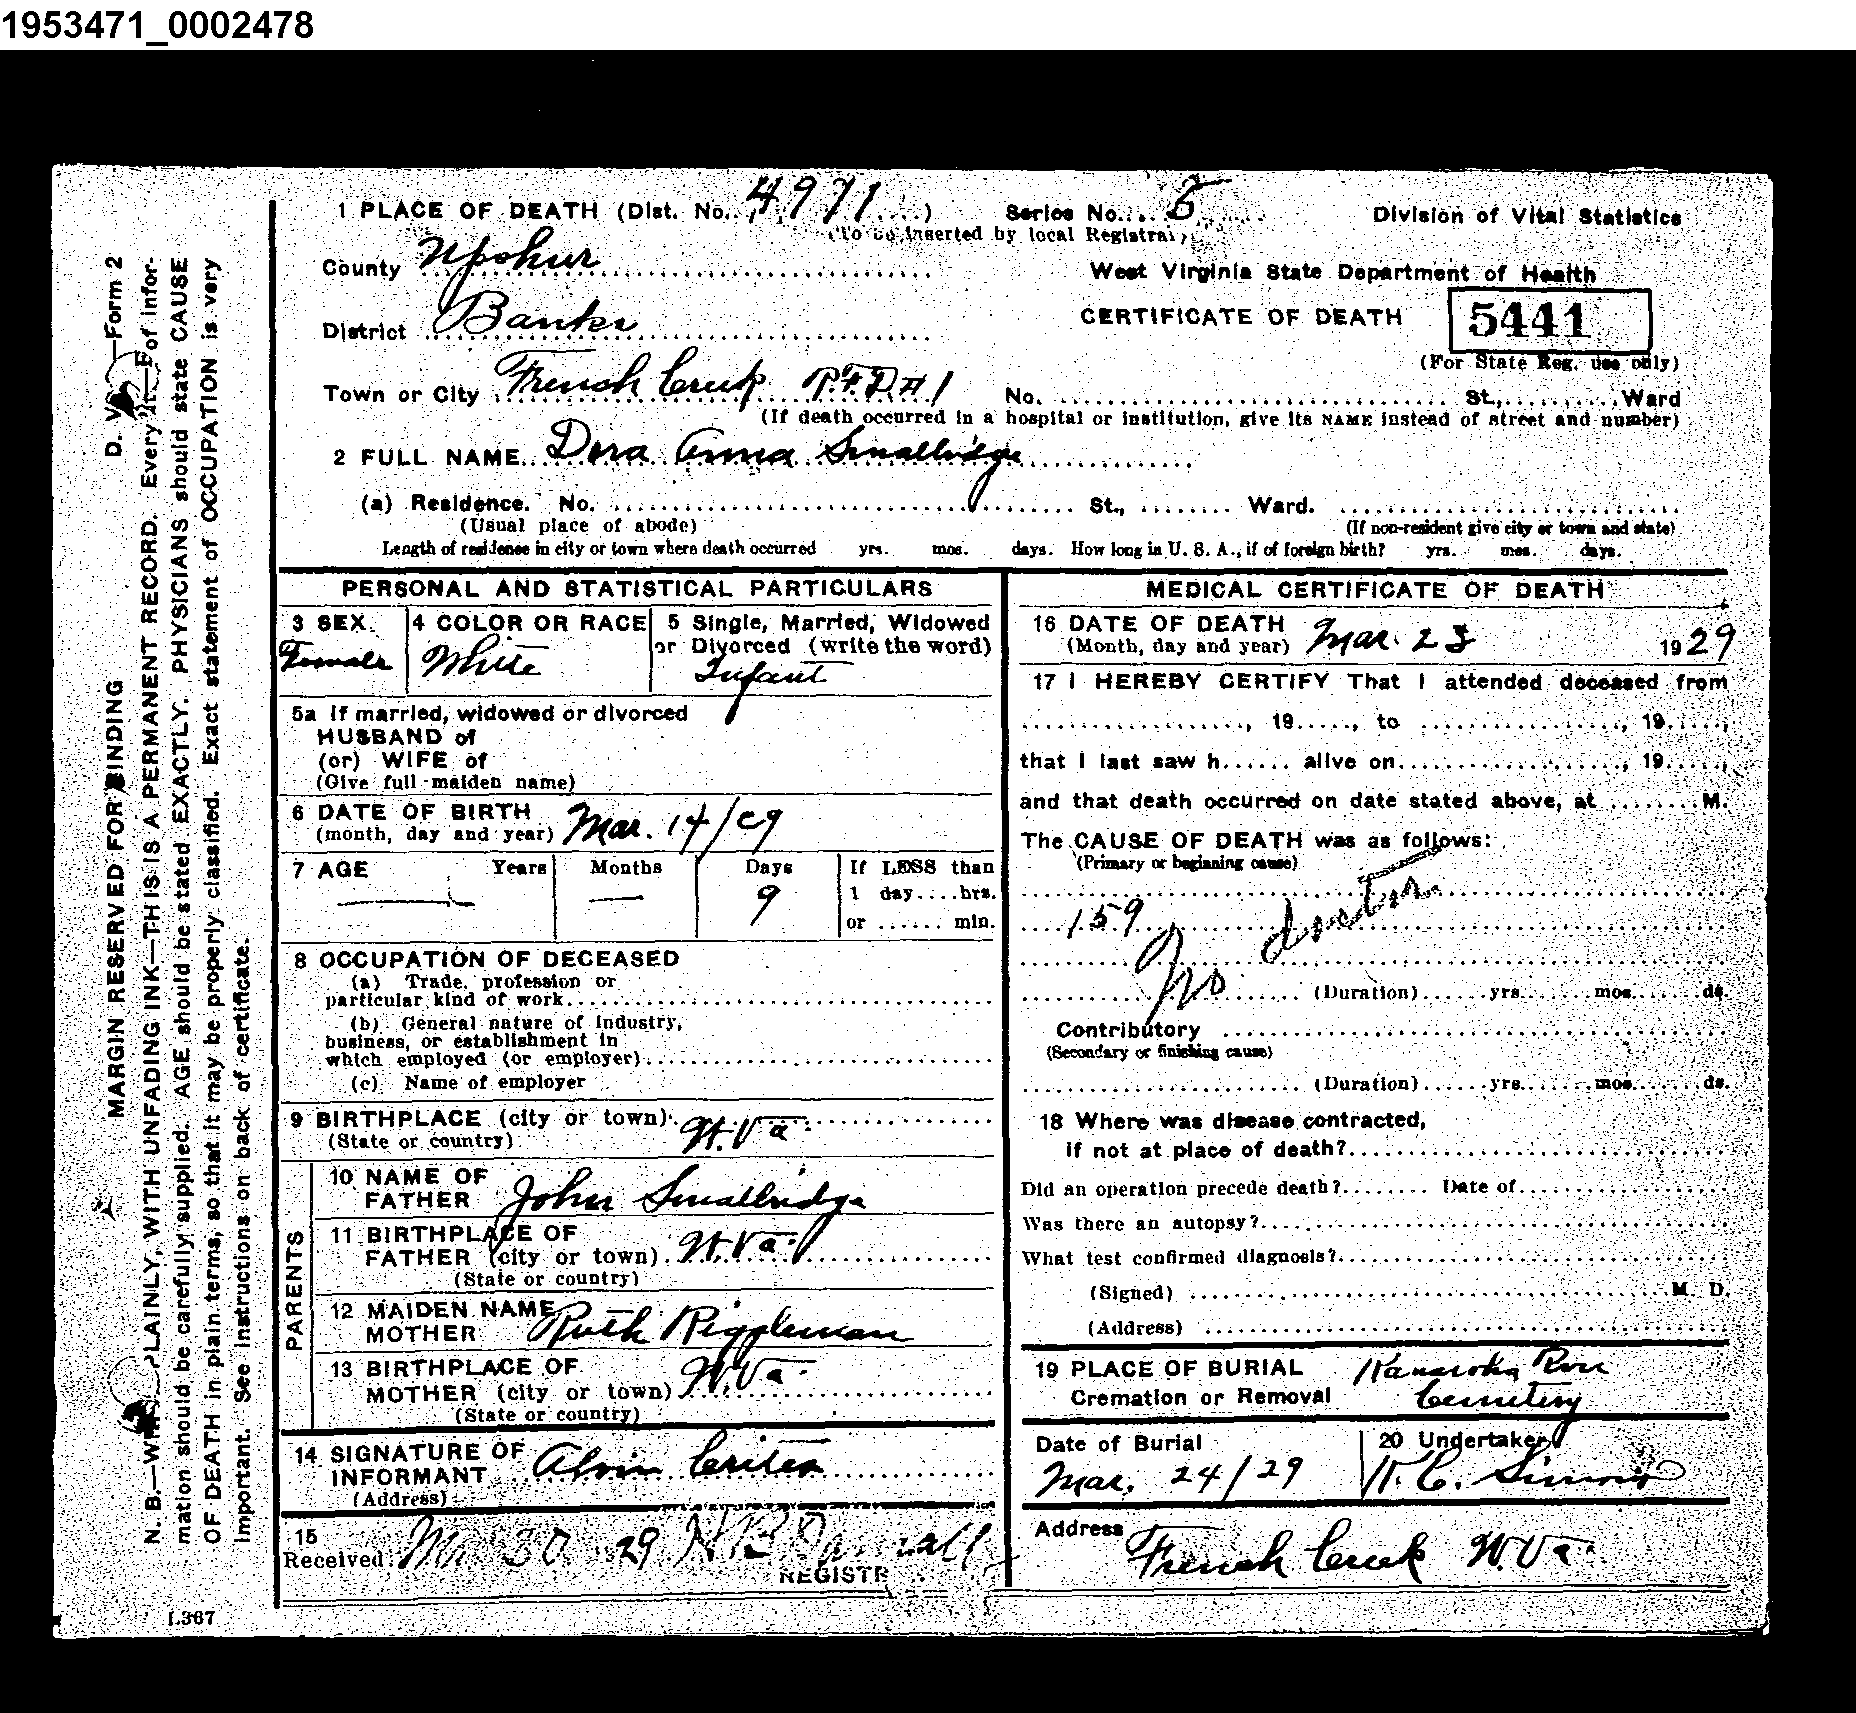 1953471_0002478
1 PLACE OF DEATH (Dist. No. 4971) Series No. 5 Division of Vital Statistics
(To be inserted by local Registrar)
County Upshur West Virginia State Department of Health
District Banks CERTIFICATE OF DEATH 5441
(For State Reg. use only)
Town or City French Creek RFD #1 No. St., Ward
(If death occurred in a hospital or institution, give its NAME instead of street and number)
2 FULL NAME Dora Anna Smallridge
(a) Residence. No. St., Ward.
(Usual place of abode) (If non-resident give city or town and state)
Length of residence in city or town where death occurred yrs. mos. days. How long in U. S. A., if of foreign birth? yrs. mos. days.
PERSONAL AND STATISTICAL PARTICULARS
3 SEX 4 COLOR OR RACE 5 Single, Married, Widowed
or Divorced (write the word)
Female White Infant
5a If married, widowed or divorced
HUSBAND of
(or) WIFE of
(Give full maiden name)
6 DATE OF BIRTH
(month, day and year) Mar. 14/29
7 AGE Years Months Days If LESS than
9 1 day....hrs.
or ...... min.
8 OCCUPATION OF DECEASED
(a) Trade, profession or
particular kind of work
(b) General nature of industry,
business, or establishment in
which employed (or employer)
(c) Name of employer
9 BIRTHPLACE (city or town)
(State or country) W.Va.
PARENTS
10 NAME OF
FATHER John Smallridge
11 BIRTHPLACE OF
FATHER (city or town) W.Va.
(State or country)
12 MAIDEN NAME
MOTHER Ruth Riggleman
13 BIRTHPLACE OF
MOTHER (city or town) W.Va.
(State or country)
14 SIGNATURE OF
INFORMANT Alvin Crites
(Address)
15
Received Mar 30 29
REGISTR
MEDICAL CERTIFICATE OF DEATH
16 DATE OF DEATH
(Month, day and year) Mar. 23 1929
17 I HEREBY CERTIFY That I attended deceased from
, 19....., to , 19.....,
that I last saw h...... alive on , 19.....,
and that death occurred on date stated above, at ........M.
The CAUSE OF DEATH was as follows:
(Primary or beginning cause)
159
No doctor
(Duration)......yrs.......mos.......ds.
Contributory
(Secondary or finishing cause)
(Duration)......yrs.......mos.......ds.
18 Where was disease contracted,
if not at place of death?
Did an operation precede death? Date of
Was there an autopsy?
What test confirmed diagnosis?
(Signed) M. D.
(Address)
19 PLACE OF BURIAL
Cremation or Removal
Cemetery
Date of Burial 20 Undertaker
Mar. 24/29
Address
French Creek W.Va.
D. V. —Form 2
MARGIN RESERVED FOR BINDING
N. B.—WRITE PLAINLY, WITH UNFADING INK—THIS IS A PERMANENT RECORD. Every item of infor-
mation should be carefully supplied. AGE should be stated EXACTLY. PHYSICIANS should state CAUSE
OF DEATH in plain terms, so that it may be properly classified. Exact statement of OCCUPATION is very
important. See instructions on back of certificate.
1.367